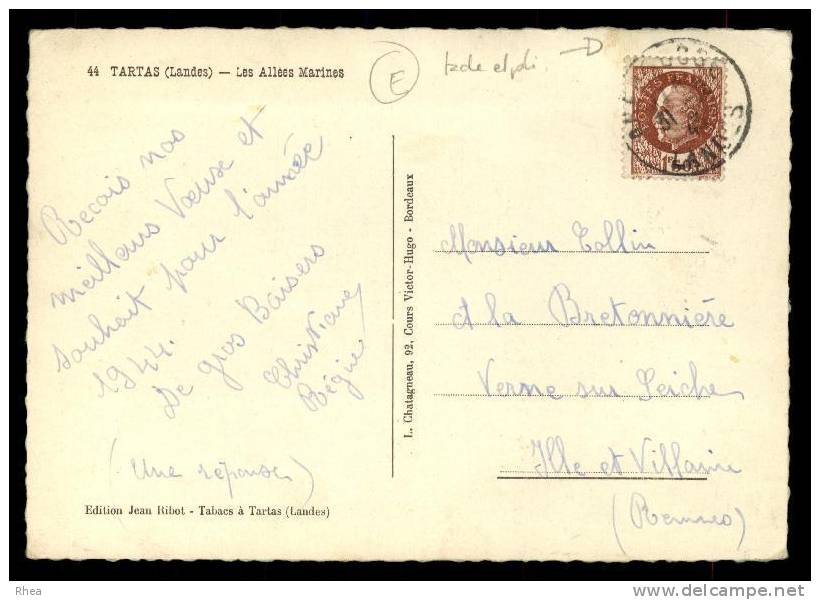 44 TARTAS (Landes) — Les Allées Marines
E
Recois nos
meilleurs Vœuse et
souhait pour l'année
1944.
De gros Baisers
Christiane
Régine
(Une réponse)
Edition Jean Ribot - Tabacs à Tartas (Landes)
L. Chatagneau, 92, Cours Victor-Hugo - Bordeaux
D
POSTES FRANÇAISES
LANDES
Monsieur Collin
et la Bretonnière
Verne sur Seiche
Ille et Villaine
(Rennes)
Rhea
www.delcampe.net